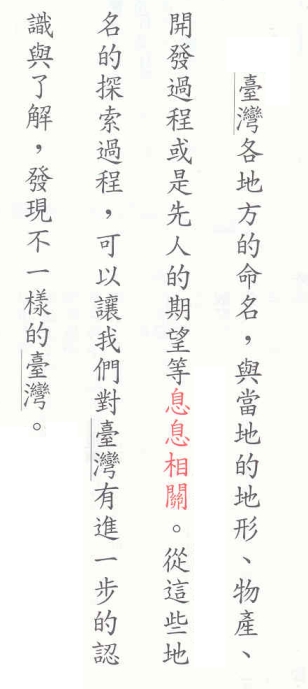 臺灣各地方的命名，與當地的地形、物產、
開發過程或是先人的期望等息息相關。從這些地
名的探索過程，可以讓我們對臺灣有進一步的認
識與了解，發現不一樣的臺灣。